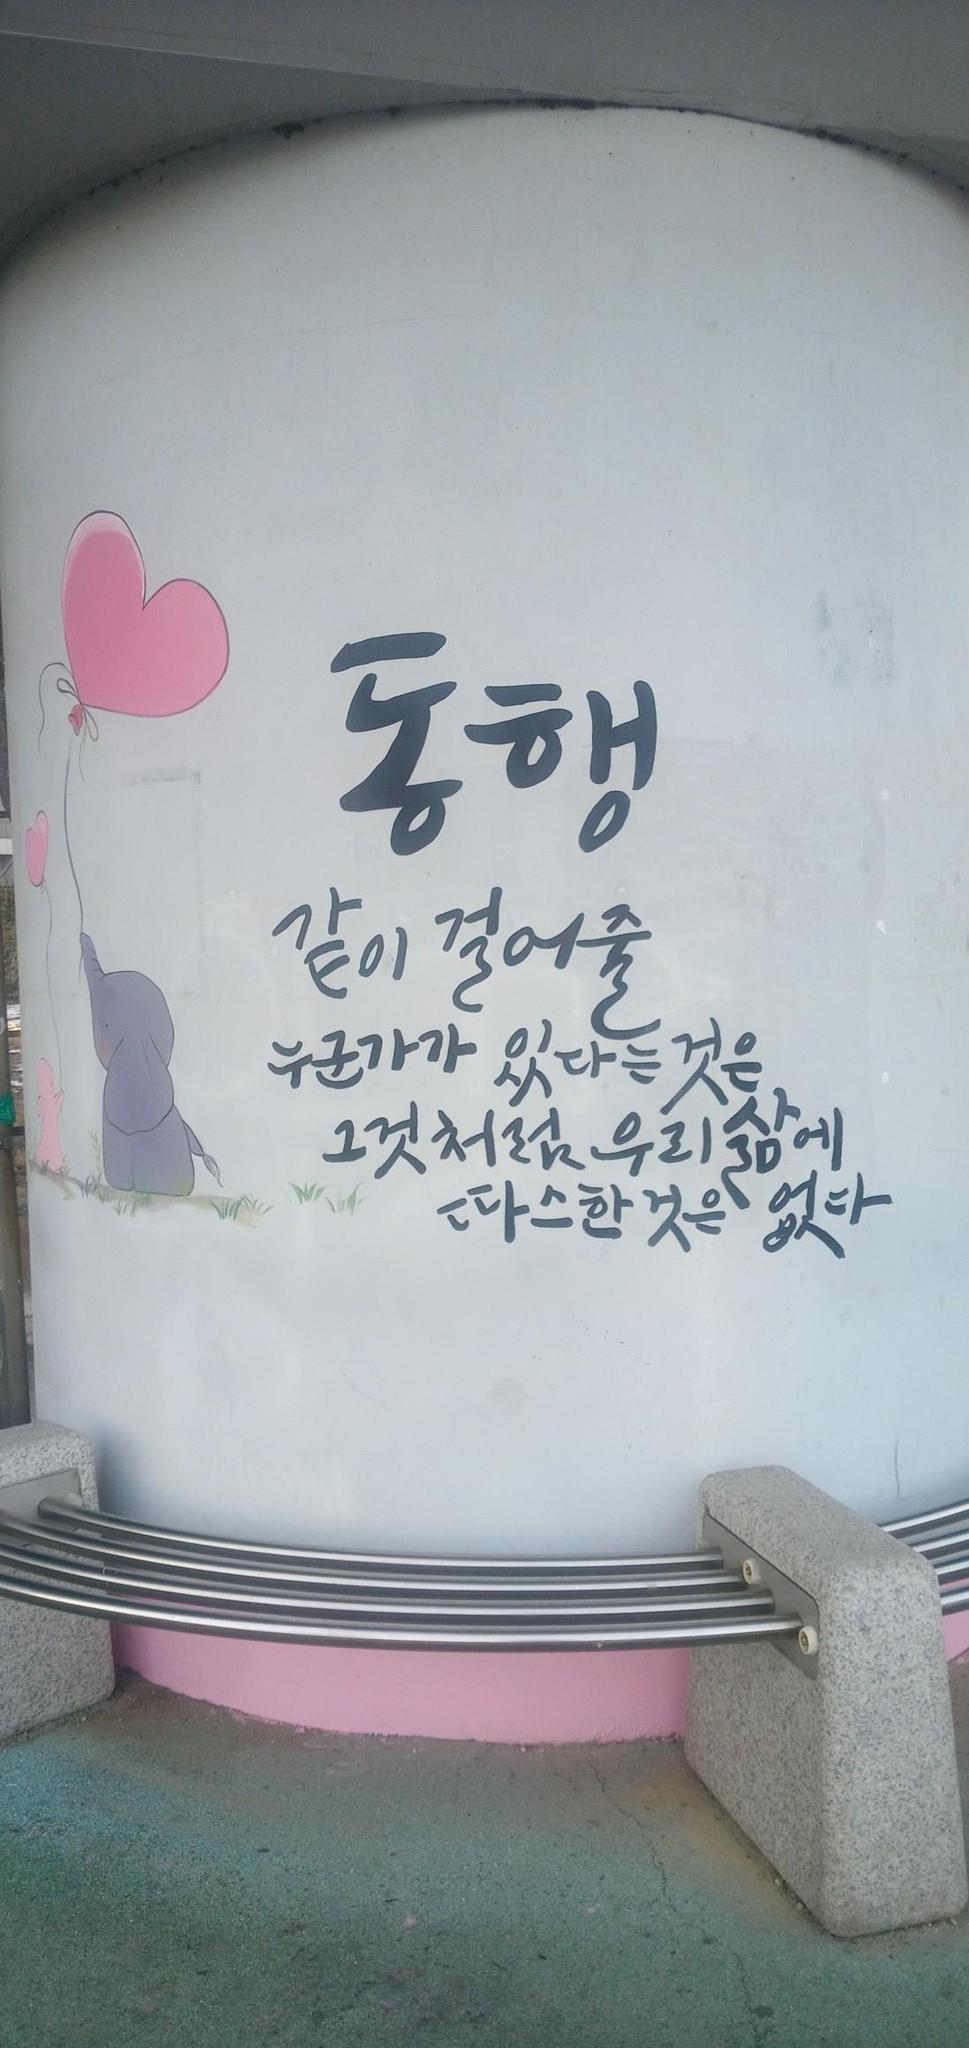 동행
같이 걸어줄
누군가가 있다는것은
그것처럼 우리삶에
따스한것은 없다